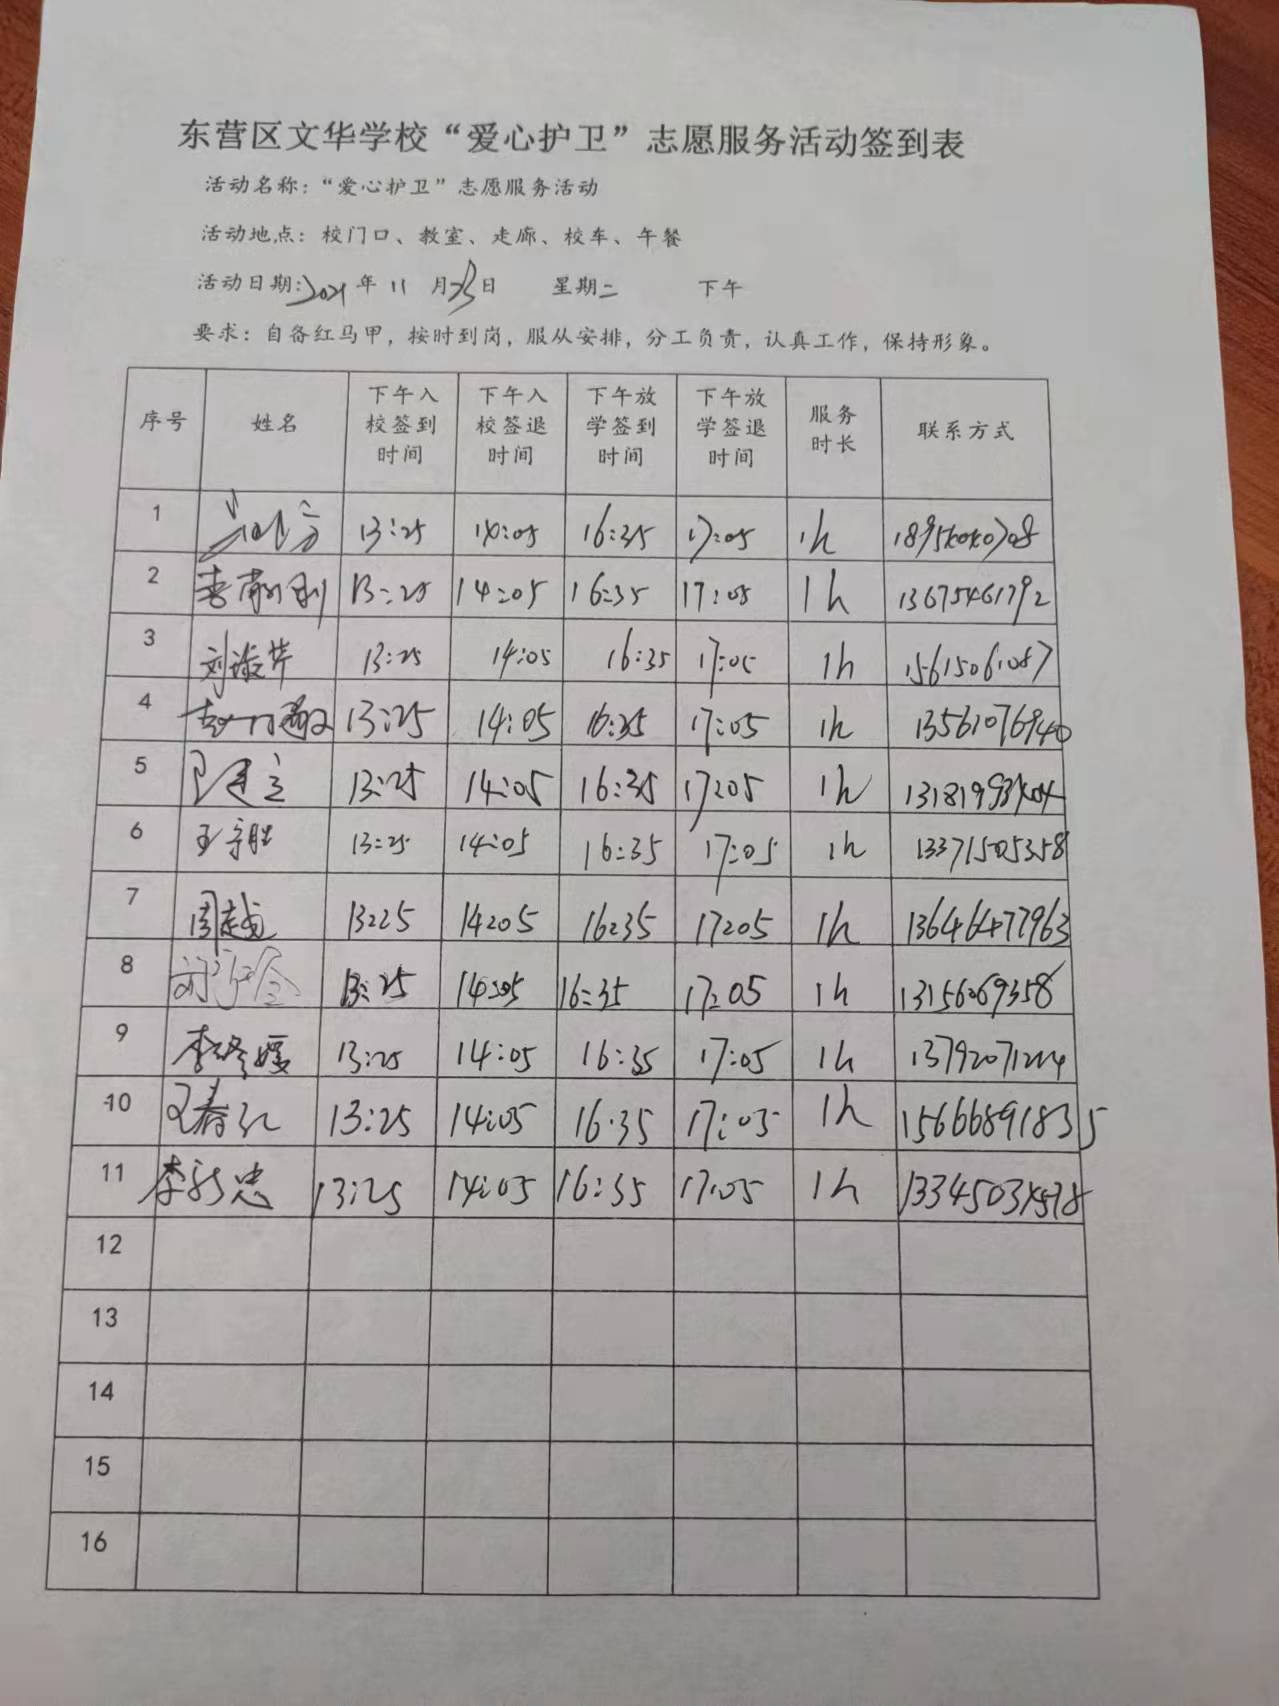 东营区文华学校“爱心护卫”志愿服务活动签到表
活动名称：“爱心护卫”志愿服务活动
活动地点：校门口、教室、走廊、校车、午餐
活动日期：2021年11月23日 星期二 下午
要求：自备红马甲，按时到岗，服从安排，分工负责，认真工作，保持形象。
序号 姓名 下午入校签到时间 下午入校签退时间 下午放学签到时间 下午放学签退时间 服务时长 联系方式
1 13:25 14:05 16:35 17:05 1h
2 13:25 14:05 16:35 17:05 1h 13675461792
3 刘淑芹 13:25 14:05 16:35 17:05 1h 15615061087
4 13:25 14:05 16:35 17:05 1h 13561076940
5 13:25 14:05 16:35 17:05 1h
6 王宁胜 13:25 14:05 16:35 17:05 1h 13371505358
7 周越 13:25 14:05 16:35 17:05 1h 13646477963
8 13:25 14:05 16:35 17:05 1h 13156069358
9 13:25 14:05 16:35 17:05 1h
10 王春红 13:25 14:05 16:35 17:05 1h 15666891835
11 李新忠 13:25 14:05 16:35 17:05 1h
12
13
14
15
16